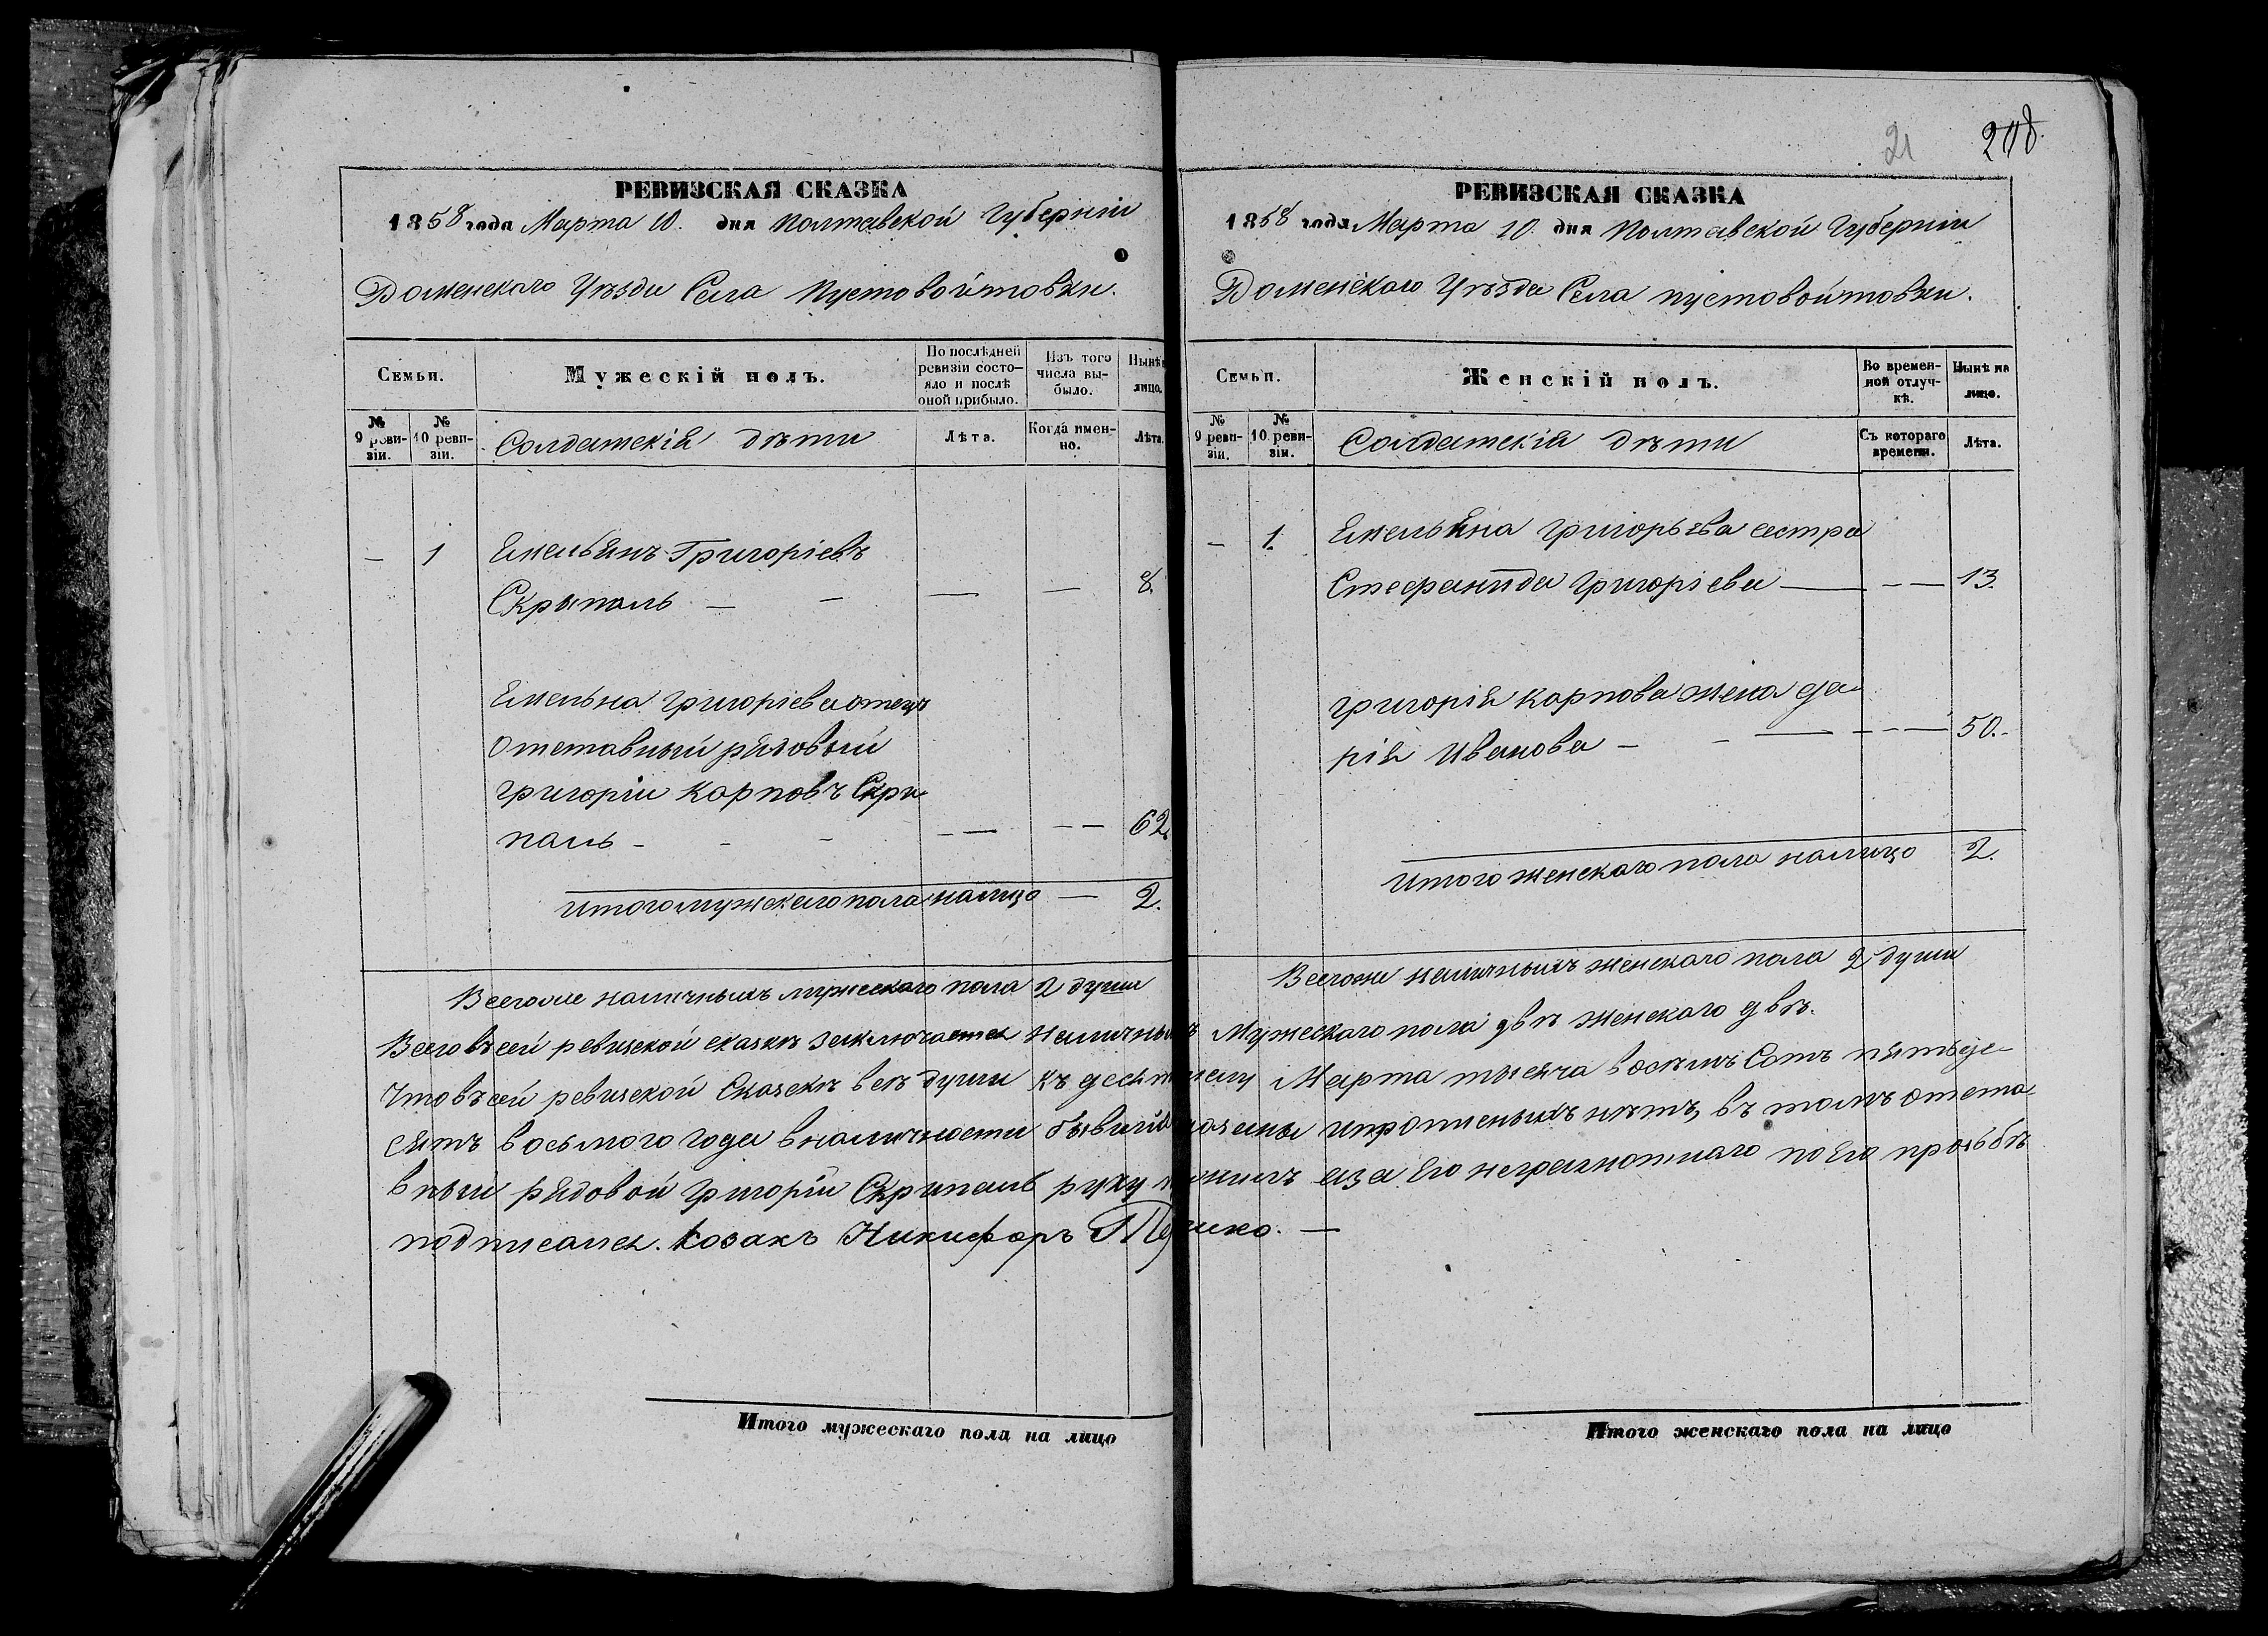 21 208.
РЕВИЗСКАЯ СКАЗКА
1858 года Марта 10. дня Полтавской Губерніи
Роменскаго Уѣзда Села Пустовойтовки.
Семьи.
Мужескій полъ.
По послѣдней ревизіи состояло и послѣ оной прибыло.
Изъ того числа выбыло.
Нынѣ
лицо.
№ 9 ревизіи.
№ 10 ревизіи.
Солдатскія дѣти
Лѣта.
Когда именно.
Лѣта.
— 1 Емельянъ Григоріевъ
Скрыпаль — — — — 8.
Емельяна Григоріева отецъ
Отставный рядовый
Григорій Карповъ Скри
паль - - - — — 62.
Итого мужескаго пола налицо — 2.
Всего же наличныхъ мужескаго пола 2 души
РЕВИЗСКАЯ СКАЗКА
1858 года Марта 10. дня Полтавской Губерніи
Роменскаго Уѣзда Села пустовойтовки.
Семьи.
Женскій полъ.
Во временной отлучкѣ.
Нынѣ на лицо.
№ 9 ревизіи.
№ 10 ревизіи.
Солдатскія дѣти
Съ котораго времени.
Лѣта.
— 1. Емельяна Григорьева сестра
Стефанида Григоріева — — — 13.
Григорія Карпова жена да
рія Иванова — - — - - — 50.-
Итого женскаго пола налицо 2.
Всего же наличныхъ женскаго пола 2 души
Всего въ сей ревизской сказкѣ заключается Наличныхъ Мужескаго пола двѣ женскаго двѣ.
Что въ сей ревизской Сказкѣ всѣ души къ десятому Марта тысяча восемь Сотъ пятьде
сятъ восьмого года въ наличности бывшія показаны и пропущенныхъ нѣтъ, въ томъ отста
вный рядовой Григорій Скрипаль руку приложилъ а за Его неграмотнаго по Его прозьбѣ
подписался. Козакъ Никифоръ —
Итого мужескаго пола на лицо
Итого женскаго пола на лицо